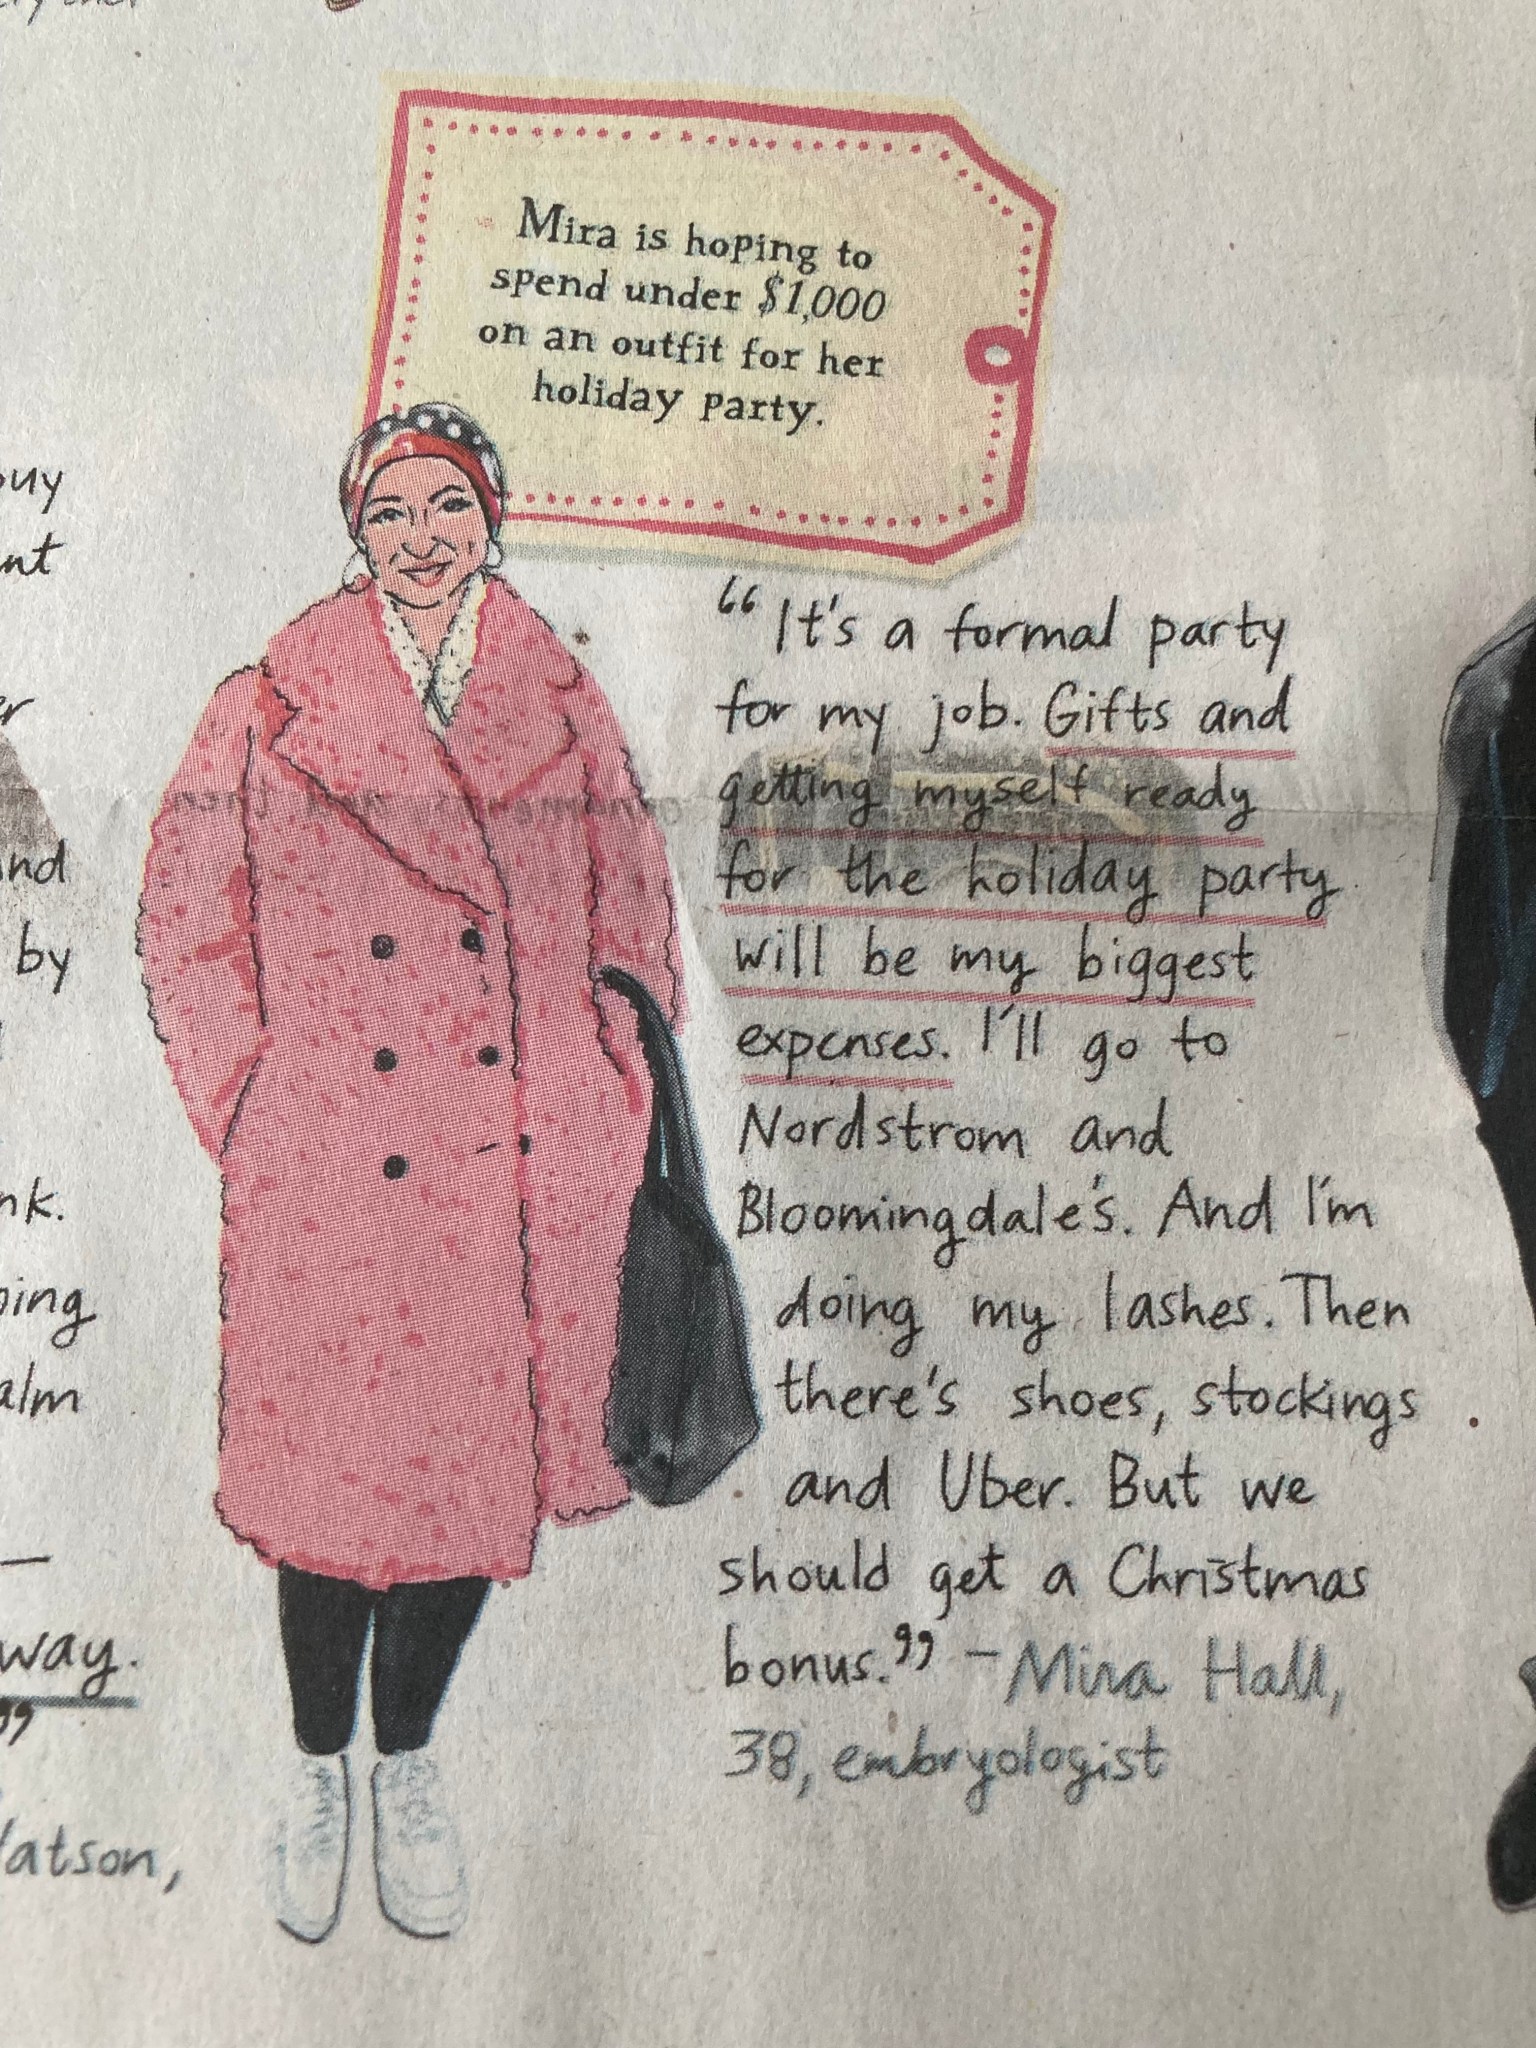 Mira is hoping to
spend under $1,000
on an outfit for her
holiday party.
“It's a formal party
for my job. Gifts and
getting myself ready
for the holiday party
will be my biggest
expenses. I'll go to
Nordstrom and
Bloomingdale's. And I'm
doing my lashes. Then
there's shoes, stockings
and Uber. But we
should get a Christmas
bonus.” –Mira Hall,
38, embryologist
by
way.
”